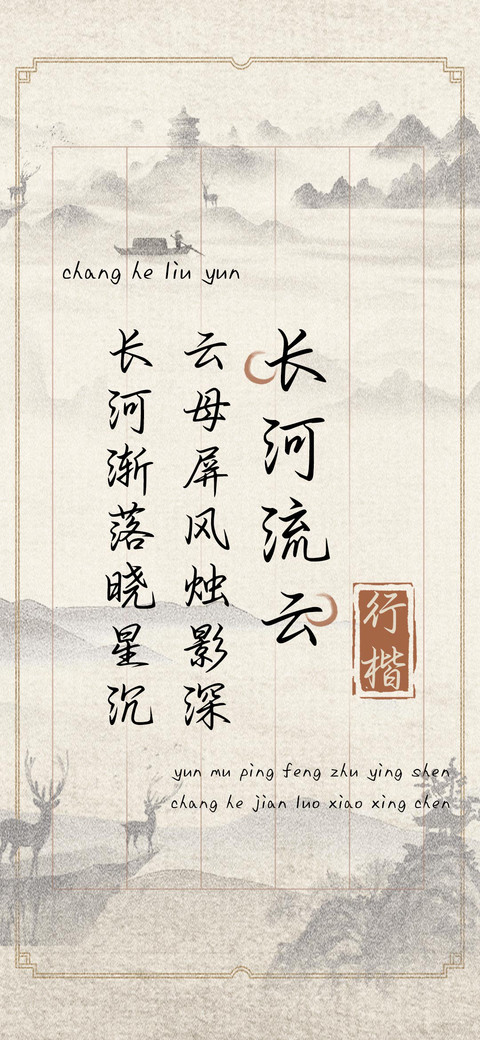 chang he liu yun
长河流云
云母屏风烛影深
长河渐落晓星沉
行楷
yun mu ping feng zhu ying shen
chang he jian luo xiao xing chen